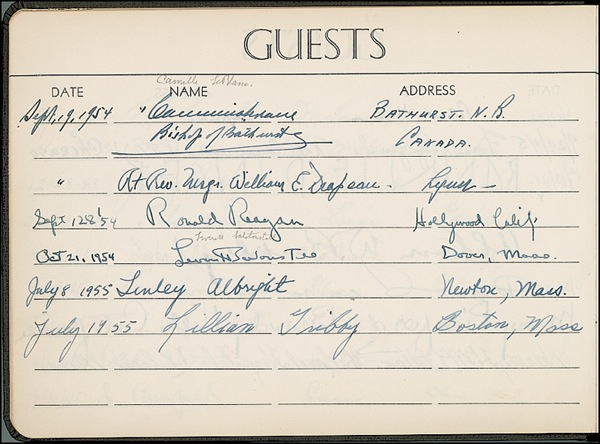 GUESTS
Camille
DATE NAME ADDRESS
Sept. 19, 1954 BATHURST. N. B.
Bishop of Bathurst CANADA.
" Rt Rev. Msgr. William E. Drapeau. Lynn
Sept 128'54 Ronald Reagan Hollywood Calif
Oct 21, 1954 Dover, Mass.
July 8 1955 Tenley Albright Newton, Mass.
July 1955 Lillian Tribby Boston, Mass